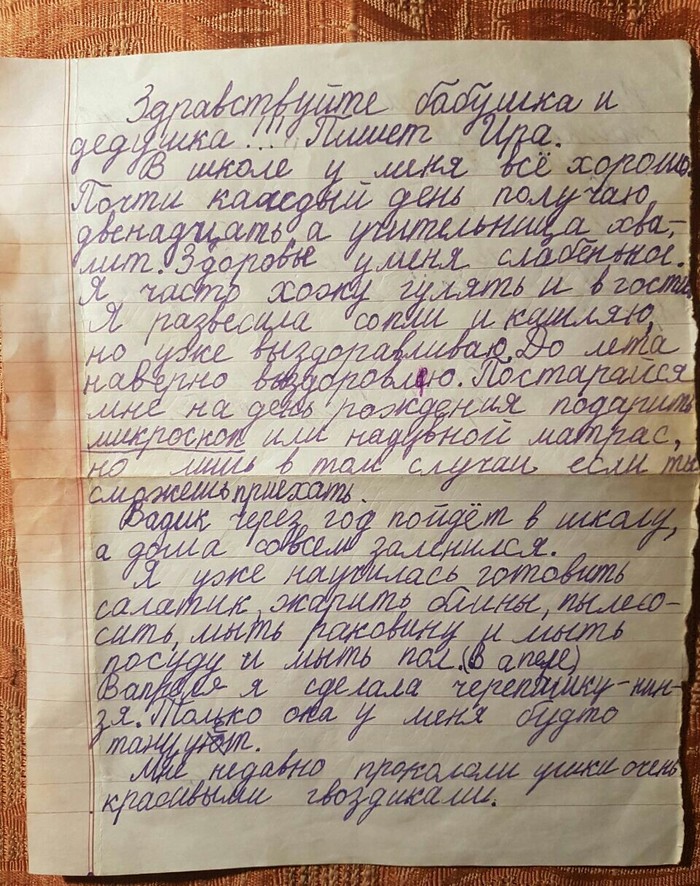 Здравствуйте бабушка и
дедушка!!! Пишет Ира.
В школе у меня всё хорошо.
Почти каждый день получаю
двенадцать а учительница хва-
лит. Здоровье у меня слабенькое.
Я часто хожу гулять и в гости
Я развесила сопли и кашляю,
но уже выздоравливаю. До лета
наверно выздоровлю. Постарайся
мне на день рождения подарить
микроскоп или надувной матрас,
но лишь в том случаи если ты
сможешь приехать.
Вадик через год пойдёт в школу,
а дома совсем заленился.
Я уже научилась готовить
салатик, жарить блины, пылесо-
сить, мыть раковину и мыть
посуду и мыть пол. (В апеле)
В апреля я сделала черепашку-нин-
зя. Только она у меня будто
танцует.
Мне недавно прокололи ушки очень
красивыми гвоздиками.